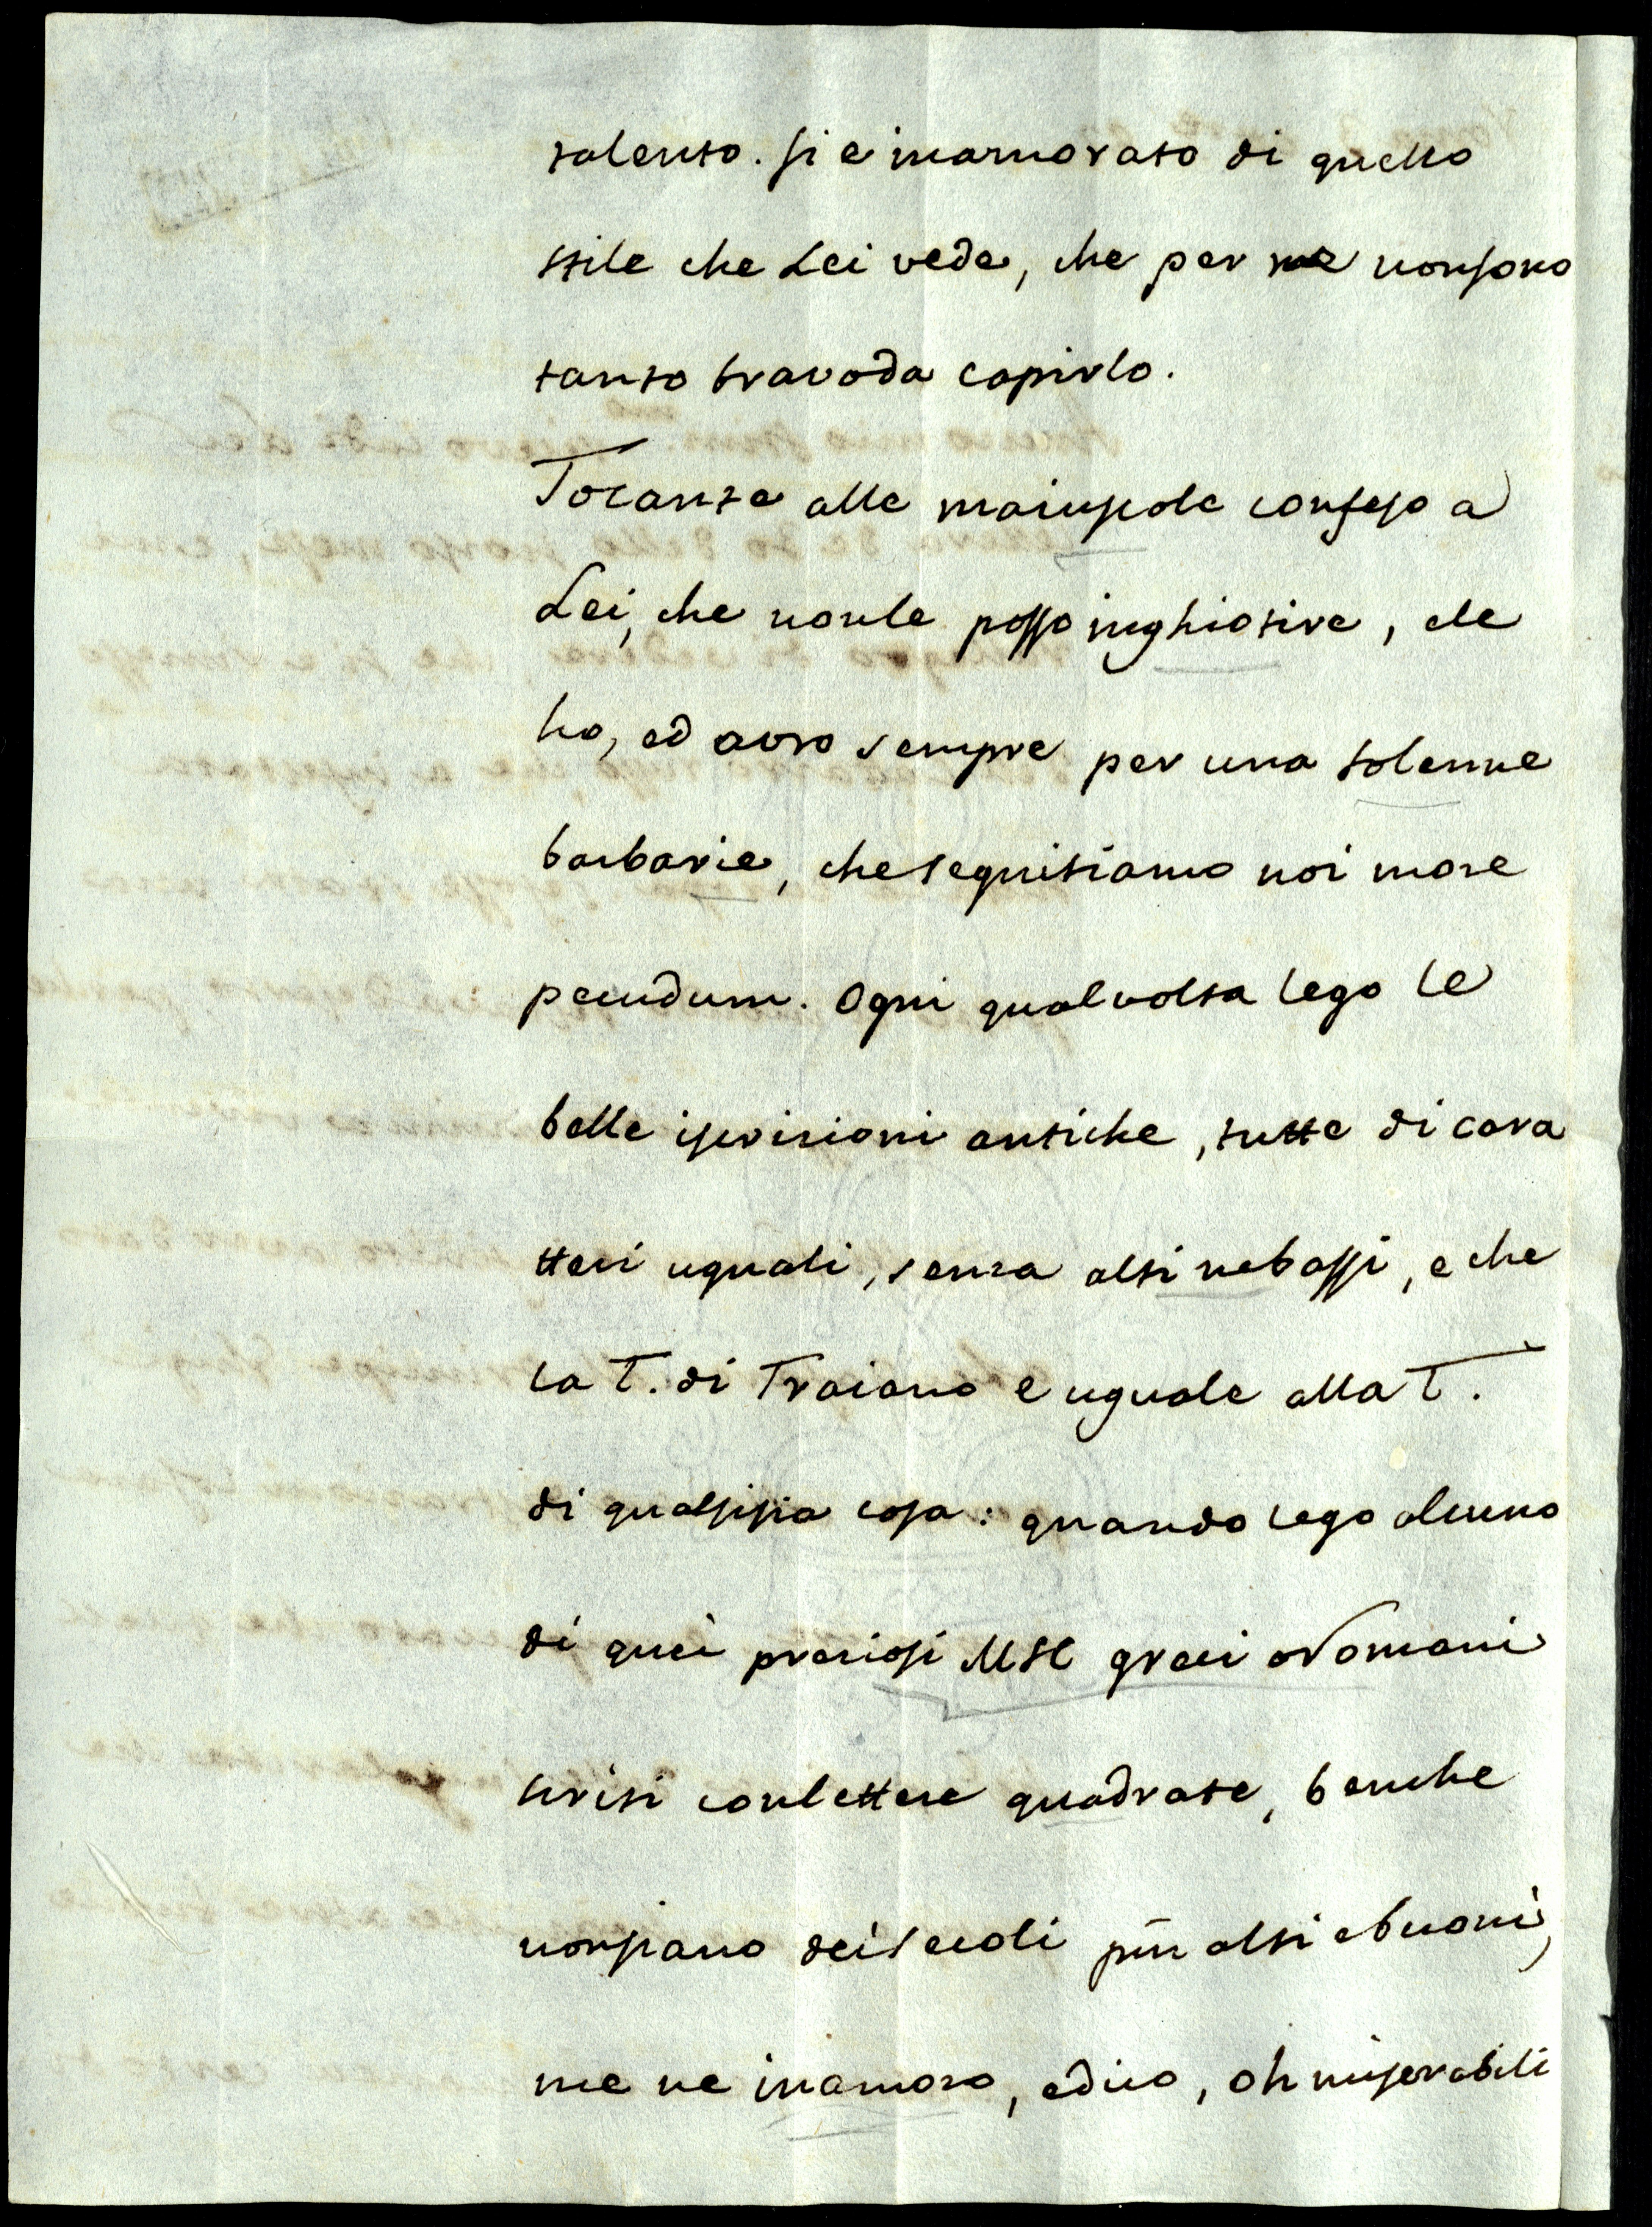 talento. si e inamorato di quello
stile che Lei vede, che per me non sono
tanto bravo da capirlo.
Tocante alle maiuscole confeso a
Lei, che non le posso inghiotire, e le
ho, ed avro sempre per una solenne
barbarie, che seguitiamo noi more
pecudum. Ogni qual volta lego le
belle iscrizioni antiche, tutte di cara
tteri uguali, senza alti ne bassi, e che
la T. di Traiano e uguale alla T.
di qualsisia cosa: quando lego alcuno
di quei preziosi MSC greci o Romani
scritti con lettere quadrate, benche
non siano dei secoli più alti e buoni,
me ne inamoro, e dico, oh miserabili